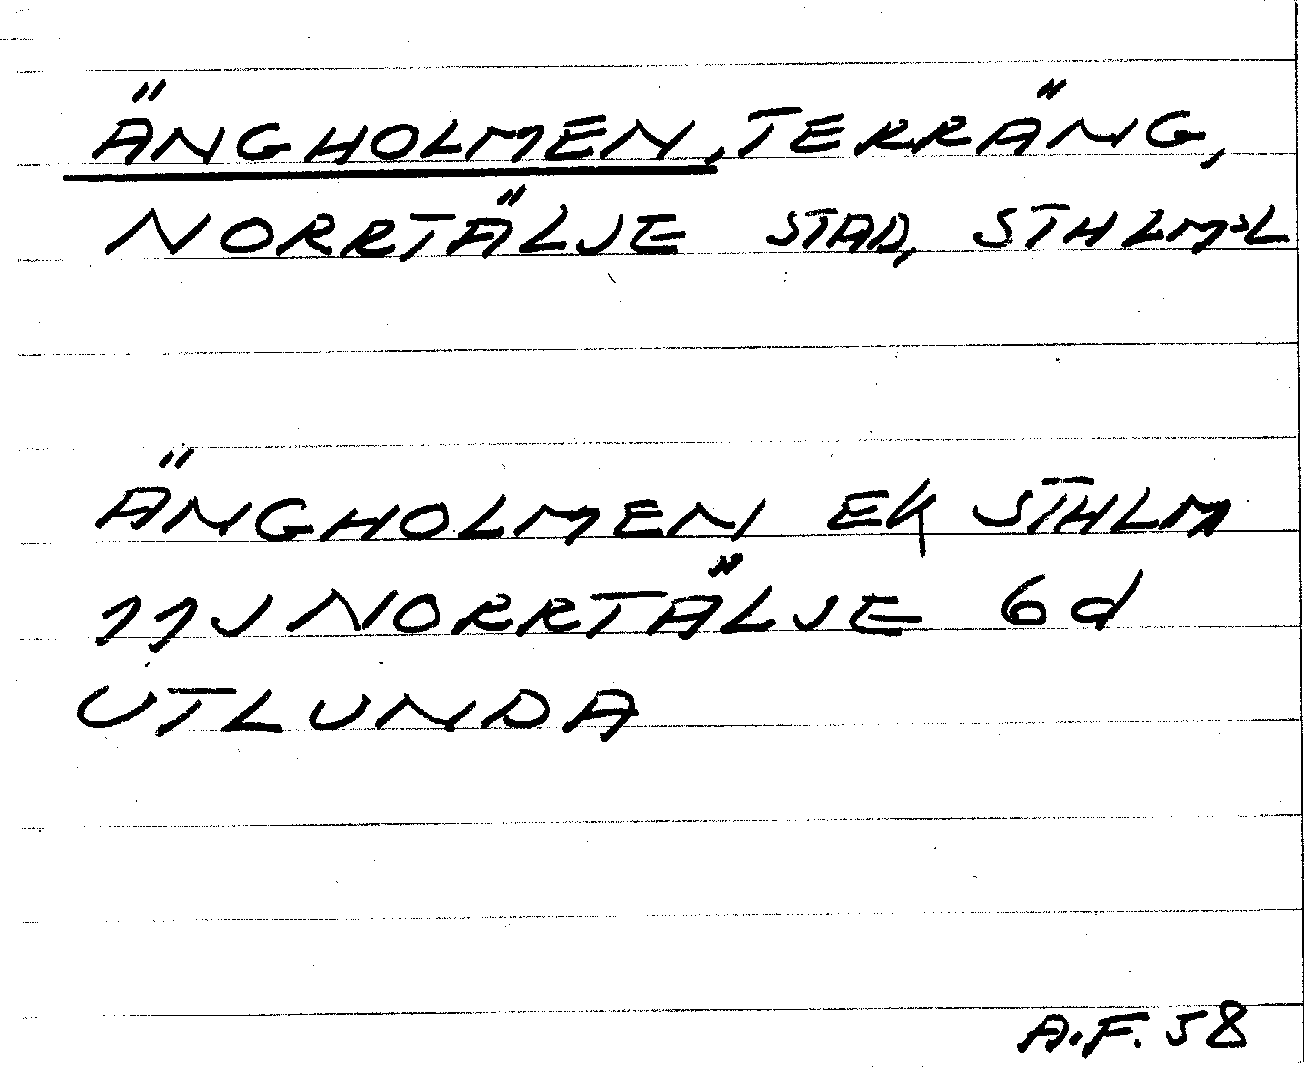 ÄNGHOLMEN, TERRÄNG,
NORRTÄLJE STAD, STHLM:SL
ÄNGHOLMEN EK STHLM
11J NORRTÄLJE 6d
UTLUNDA
A.F. 58